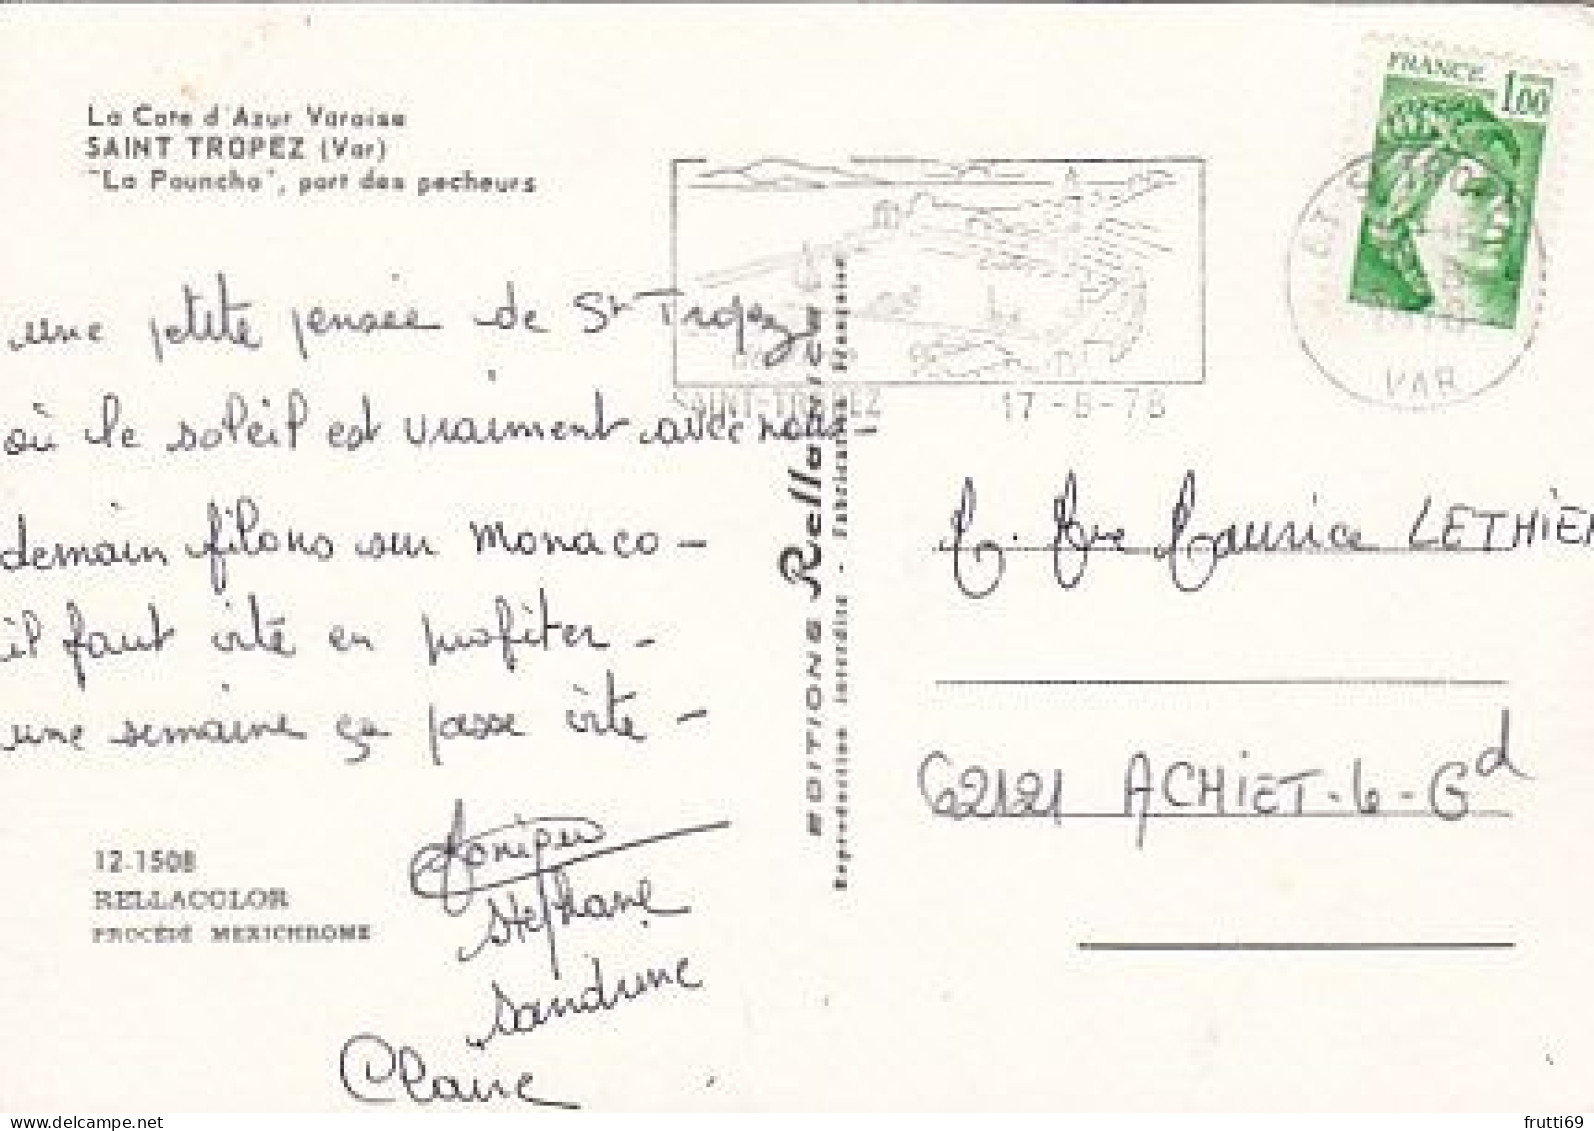 La Cote d'Azur Varoise
SAINT TROPEZ (Var)
"La Pouncha", port des pecheurs
FRANCE 1,00
une petite pensée de St Tropez
où le soleil est vraiment avec nous -
demain filons sur Monaco -
il faut vite en profiter -
une semaine ça passe vite -
Stéphane
Sandrine
Claire
12-1508
RELLACOLOR
PROCÉDÉ MEXICHROME
EDITIONS Rella NICE
Reproduction interdite - Fabrication Française
SAINT-TROPEZ 17-8-78
VAR
Maurice LETHIEN
62121 ACHIET-le-Gd
frutti69